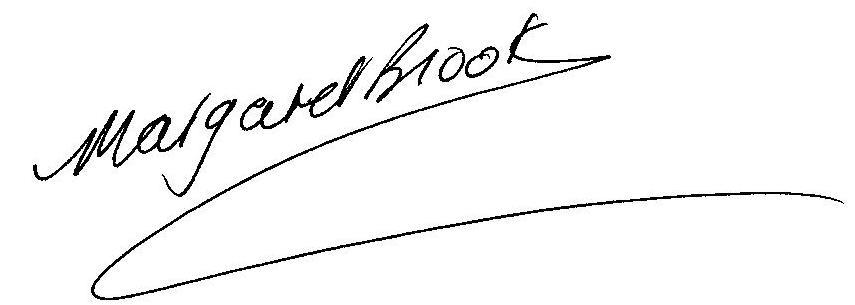 Margaret Brook